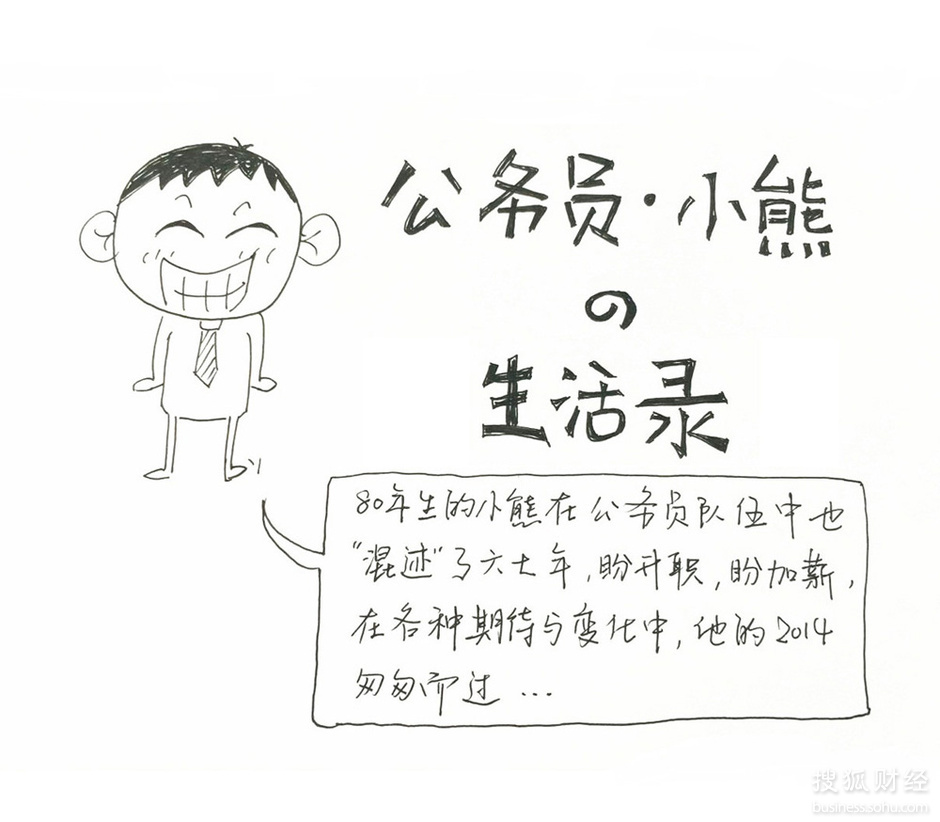 公务员·小熊
の
生活录
80年生的小熊在公务员队伍中也
"混迹"了六七年,盼升职,盼加薪,
在各种期待与变化中,他的2014
匆匆而过...
搜狐财经
business.sohu.com